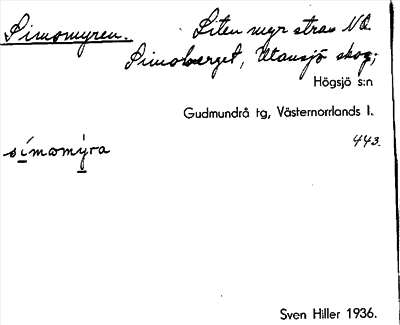 Simomyren. Liten myr strax NO.
Simoberget, Utansjö skog;
Högsjö s:n
Gudmundrå tg, Västernorrlands l.
443.
símomýra
Sven Hiller 1936.